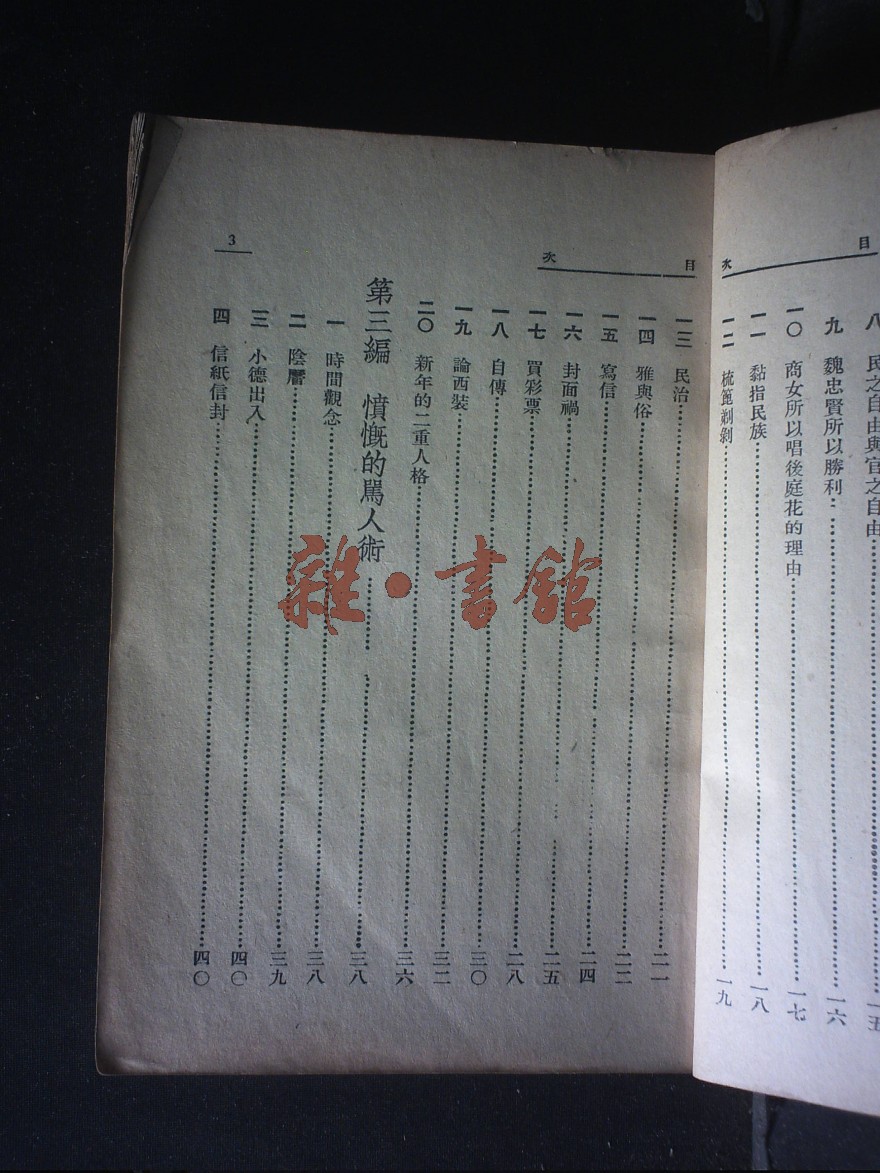 目次
八 民之自由與官之自由……一五
九 魏忠賢所以勝利……一六
一〇 商女所以唱後庭花的理由……一七
一一 黏指民族……一八
一二 梳篦剃剝……一九
目次
一三 民治……二一
一四 雅與俗……二三
一五 寫信……二四
一六 封面禍……二五
一七 買彩票……二八
一八 自傳……三〇
一九 論西裝……三二
二〇 新年的二重人格……三六
第三編 憤慨的罵人術……三八
一 時間觀念……三八
二 陰曆……三九
三 小德出入……四〇
四 信紙信封……四〇
3
雜·書館